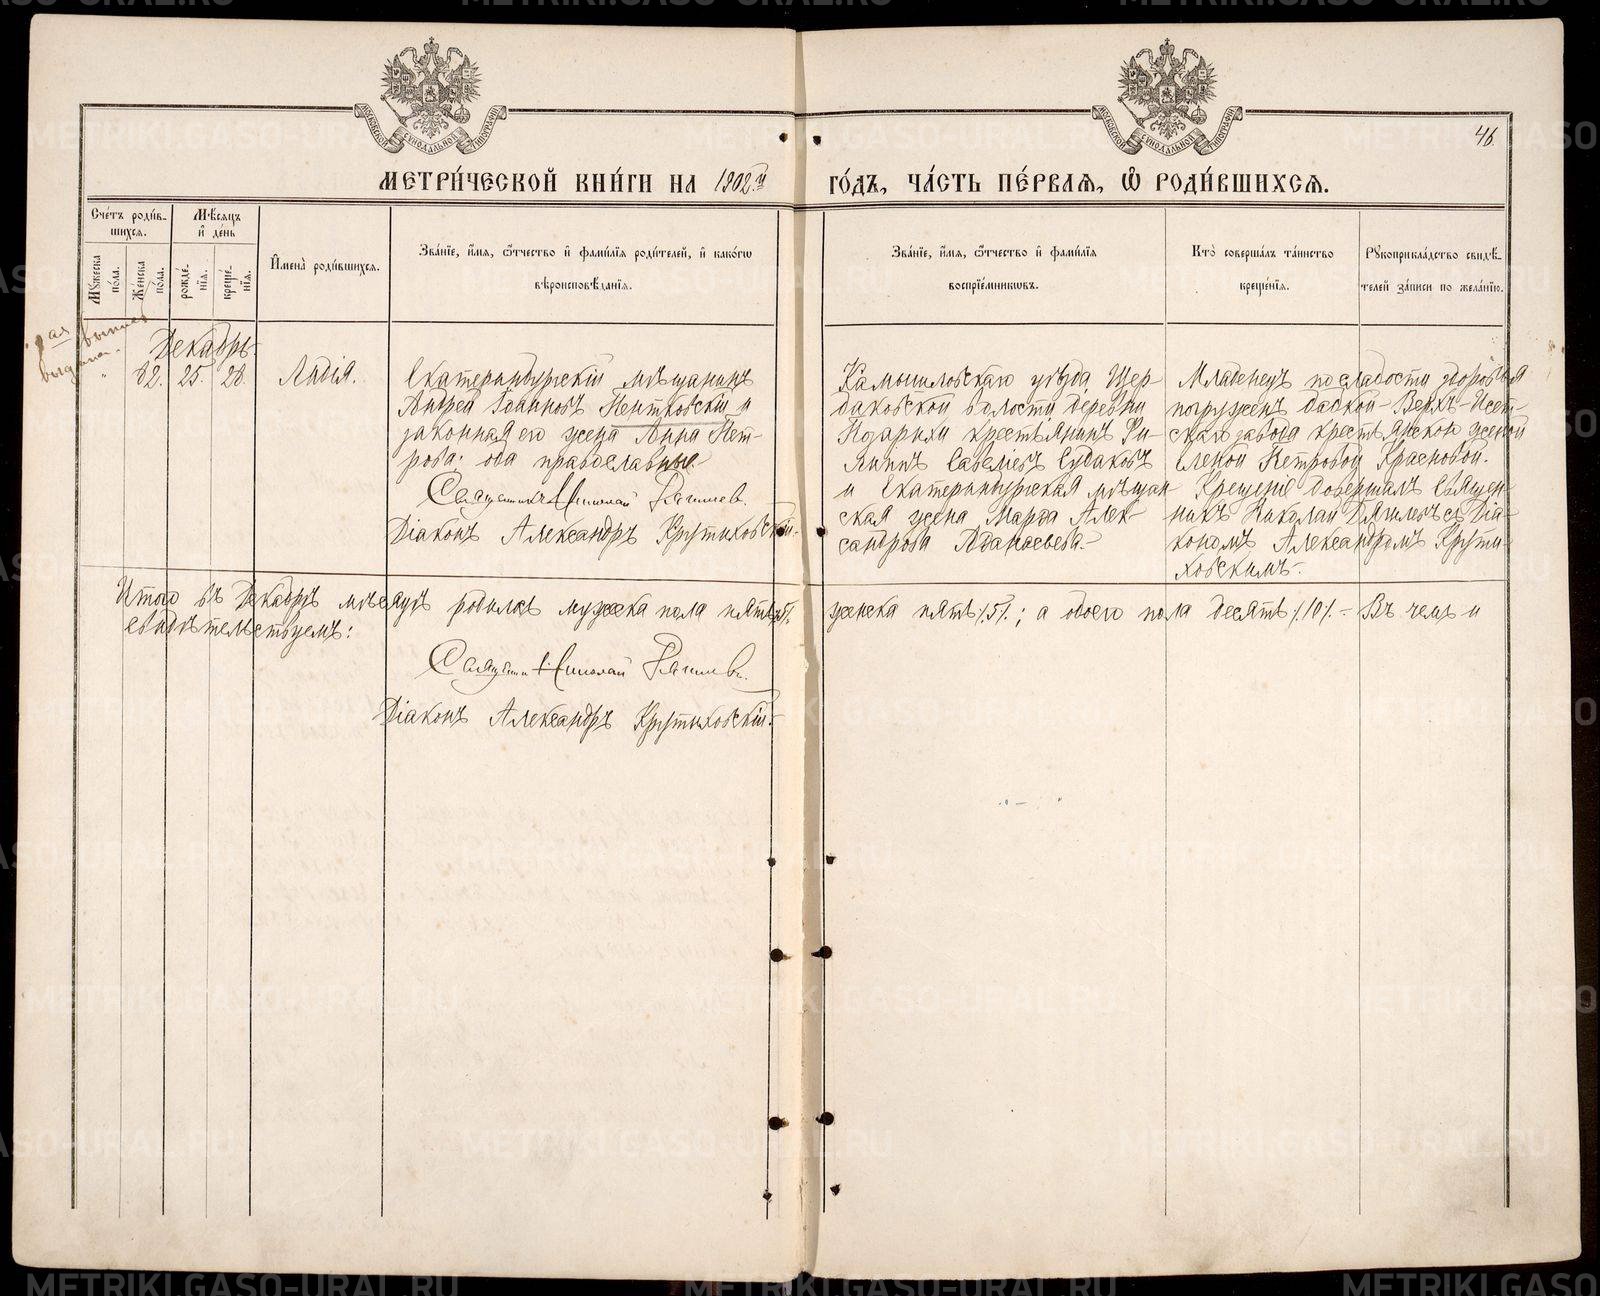 46.
МЕТРИ́ЧЕСКОЙ КНИ́ГИ НА 1902.й ГО́ДЪ, ЧА́СТЬ ПЕ́РВАЯ, Ѡ РОДИ́ВШИХСЯ.
Сче́тъ роди́вшихся.
Мѣ́сяцъ и҆ де́нь
И҆мена̀ роди́вшихся.
Зва́нїе, и҆́мя, ѻ҆́тчество и҆ фами́лїя роди́телей, и҆ како́гѡ вѣроисповѣ́данїя.
Зва́нїе, и҆́мя, ѻ҆́тчество и҆ фами́лїя воспрїе́мникѡвъ.
Кто̀ соверша́лъ та́инство креще́нїя.
Рꙋкоприкла́дство свидѣ́телей за́писи по жела́нїю.
Мꙋ́жеска по́ла.
Же́нска по́ла.
рожде́нїя.
креще́нїя.
выдана.
Декабрь.
" 82. 25. 28. Лидія.
Екатеринбургскій мѣщанинъ
Андрей Іоанновъ Пентковскій и
законная его жена Анна Пет-
рова: оба православные.
Священникъ Николай
Діаконъ Александръ Крутиховскій.
Камышловскаго уѣзда Щер-
баковской волости деревни
крестьянинъ Фи-
липпъ Савеліевъ Судаковъ
и Екатеринбургская мѣщан-
ская жена Марѳа Алек-
сандрова Аѳанасьева.
Младенецъ по слабости здоровья
погруженъ бабкой Верхъ-Исет-
скаго завода крестьянской женой
Еленой Петровой Красновой.
Крещеніе довершалъ Священ-
никъ Николай съ Діа-
кономъ Александромъ Крути-
ховскимъ.
Итого въ Декабрѣ мѣсяцѣ родилось мужска пола пять /5/. женска пять /5/.; а обоего пола десять /10/. Въ чемъ и
свидѣтельствуемъ:
Священникъ Николай
Діаконъ Александръ Крутиховскій.
METRIKI.GASO-URAL.RU